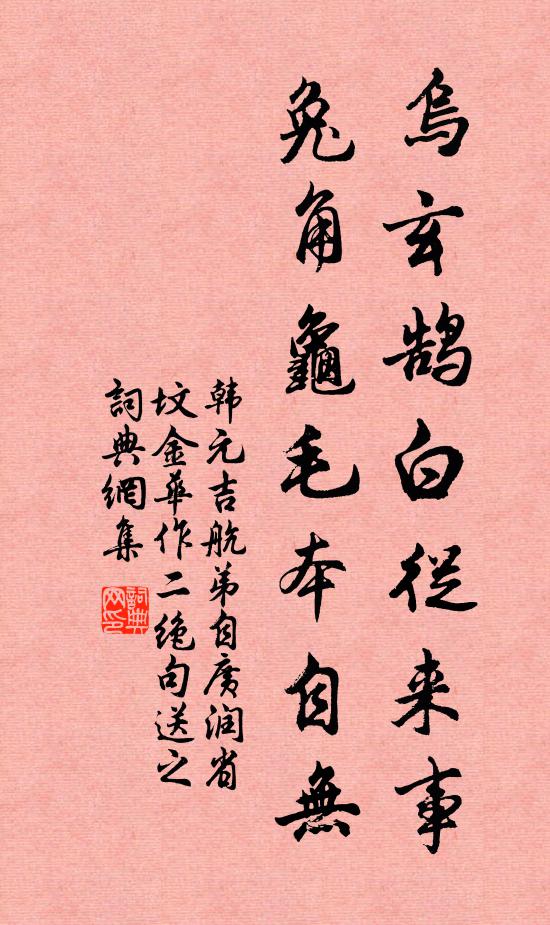 烏玄鹄白從来事
兔角龜毛本自無
韩元吉航弟自廣润省
坟金華作二绝句送之
詞典網集
詞典网印